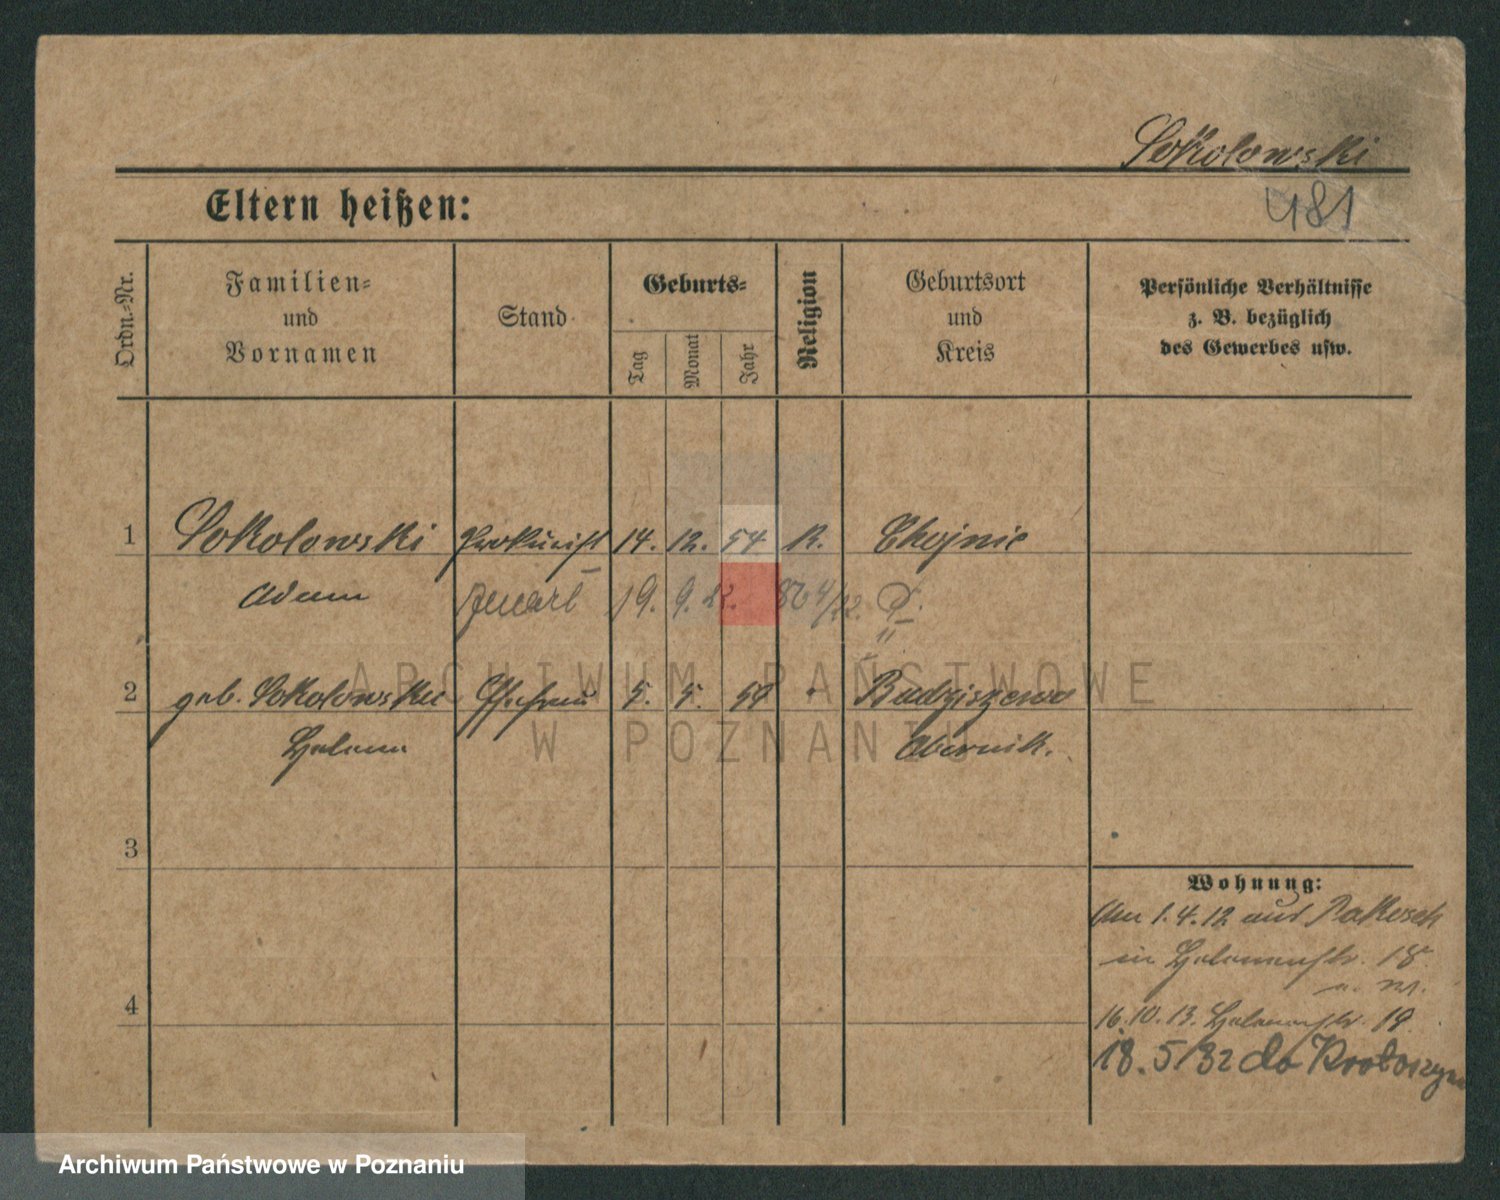 Sokolowski
Eltern heißen:
481
Ordn.-Nr.
Familien-
und
Vornamen
Stand
Geburts-
Tag
Monat
Jahr
Religion
Geburtsort
und
Kreis
Persönliche Verhältnisse
z. B. bezüglich
des Gewerbes usw.
1 Sokolowski Prokurist 14. 12. 54 K. Chojnic
Adam 19. 9.
2 geb. Sokolowska Ehefrau 5. 5. 59 " Budziszewo
Helena Obornik.
ARCHIWUM PAŃSTWOWE
W POZNANIU
3
4
Wohnung:
Am 1.4.12 aus Pakosch
in Helenenstr. 18.
16.10.13. Helenenstr. 19
18.5/32 do Krotoszyna
Archiwum Państwowe w Poznaniu